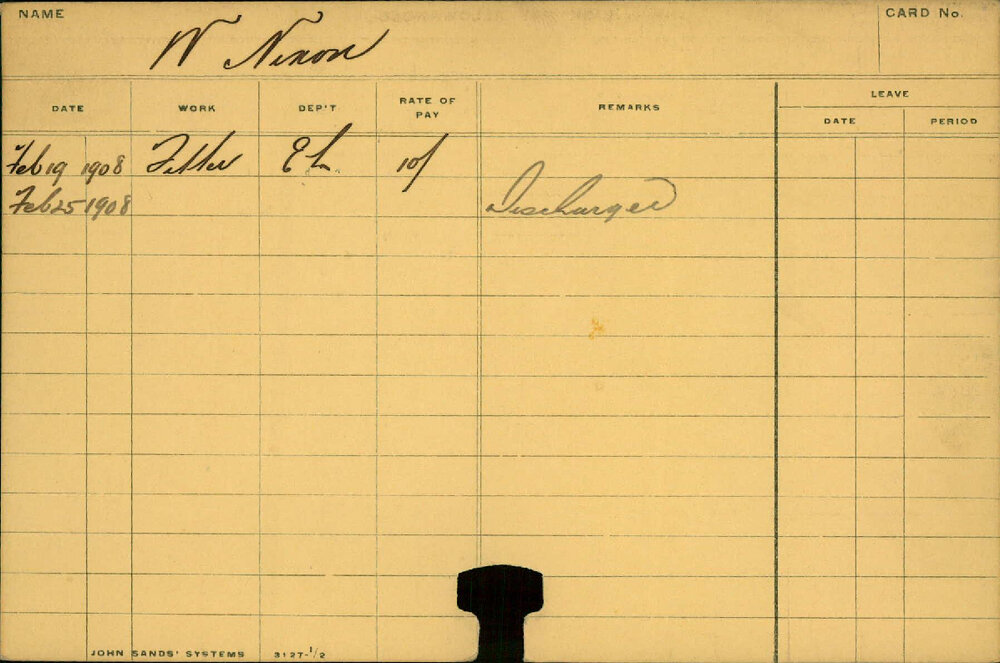 NAME
CARD No.
W Nixon
DATE WORK DEP'T RATE OF PAY REMARKS LEAVE
DATE PERIOD
Feb 19 1908 Fitter 10/
Feb 25 1908 Discharged
JOHN SANDS' SYSTEMS 3127-1/2